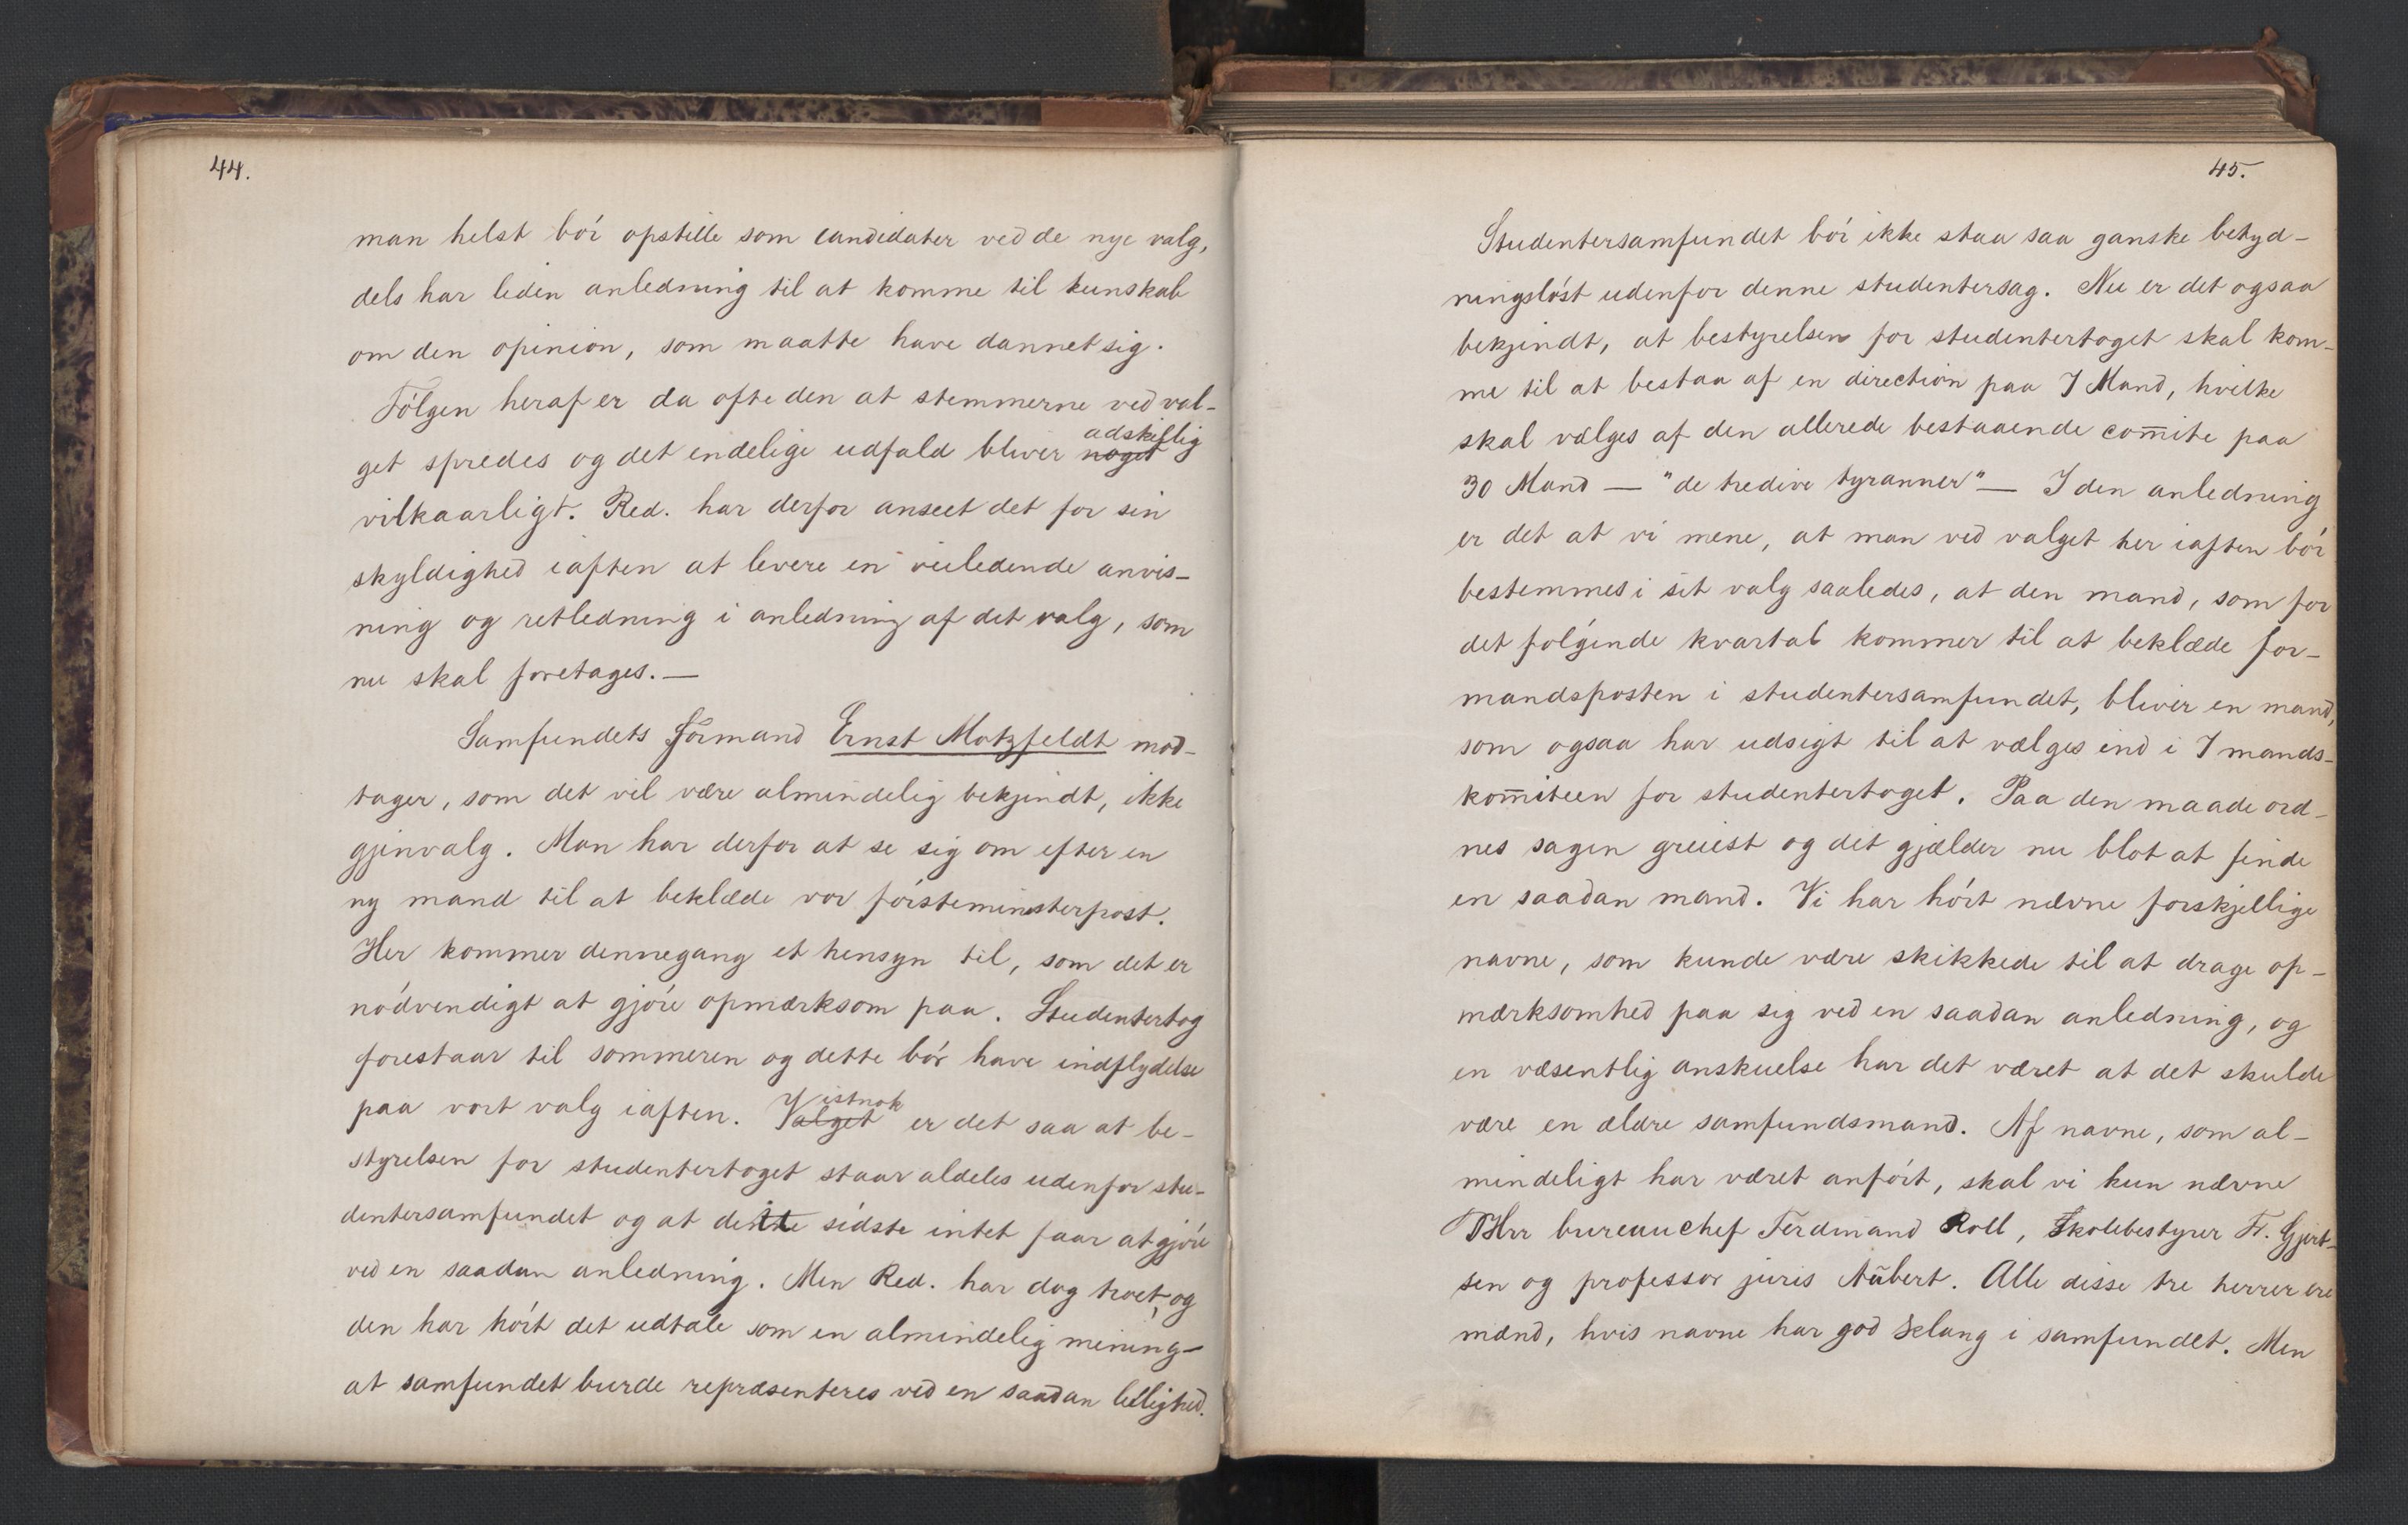 44.
man helst bör opstille som candidater ved de nye valg,
dels har liden anledning til at komme til kunskab
om den opinion, som maatte have dannet sig.
Følgen heraf er da ofte den at stemmerne ved val-
adskillig
get spredes og det endelige udfald bliver noget
vilkaarligt. Red. har derfor anseet det for sin
skyldighed iaften at levere en veiledende anvis-
ning og retledning i anledning af det valg, som
nu skal foretages. —
Samfundets Formand Ernst Motzfeldt mod-
tager, som det vil være almindelig bekjendt, ikke
gjenvalg. Man har derfor at se sig om efter en
ny mand til at beklæde vor førsteministerpost.
Her kommer dennegang et hensyn til, som det er
nødvendigt at gjøre opmærksom paa. Studentertog
forestaar til sommeren og dette bør have indflydelse
istnok
paa vort valg iaften. Valget er det saa at be-
styrelsen for studentertoget staar aldeles udenfor stu-
dentersamfundet og at dette sidste intet faar at gjøre
ved en saadan anledning. Men Red. har dog troet, og
den har hørt det udtale som en almindelig mening —
at samfundet burde repræsenteres ved en saadan leilighed.
45.
Studentersamfundet bør ikke staa saa ganske betyd-
ningsløst udenfor denne studentersag. Nu er det ogsaa
bekjendt, at bestyrelsen for studentertoget skal kom-
me til at bestaa af en direction paa 7 Mand, hvilke
skal vælges af den allerede bestaaende com̄ite paa
30 Mand — "de tredive tyranner" — I den anledning
er det at vi mene, at man ved valget her iaften bør
bestemmes i sit valg saaledes, at den mand, som for
det følgende kvartal kommer til at beklæde for-
mandsposten i studentersamfundet, bliver en mand,
som ogsaa har udsigt til at vælges ind i 7 mands-
kom̄iteen for studentertoget. Paa den maade ord-
nes sagen greiest og det gjælder nu blot at finde
en saadan mand. Vi har hørt nævne forskjellige
navne, som kunde være skikkede til at drage op-
mærksomhed paa sig ved en saadan anledning, og
en væsentlig anskuelse har det været at det skulde
være en ældre samfundsmand. Af navne, som al-
mindeligt har været anført, skal vi kun nævne
Hrr bureauchef Ferdinand Roll, Skolebestyrer Fr. Gjert-
sen og professor juris Aubert. Alle disse tre herrer ere
mænd, hvis navne har god klang i samfundet. Men